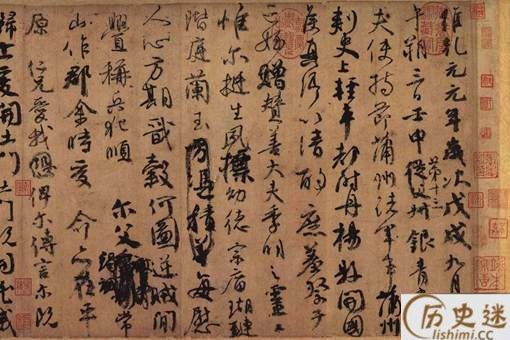 維乾元元年歲次戊戌九月
午朔三日壬申第十三從父叔銀青
夫使持節蒲州諸軍事蒲州
刺史上輕車都尉丹楊縣開國
侯真卿以清酌庶羞祭于
亡姪贈贊善大夫季明之靈曰
惟爾挺生夙標幼德宗廟瑚璉
階庭蘭玉每慰
人心方期戩穀何圖逆賊閒
釁稱兵犯順 爾父 常
山作郡余時受 命亦在平
原 仁兄愛我俾爾傳言爾既
歸止爰開土門土門既開凶威
历史迷
lishimi.cc